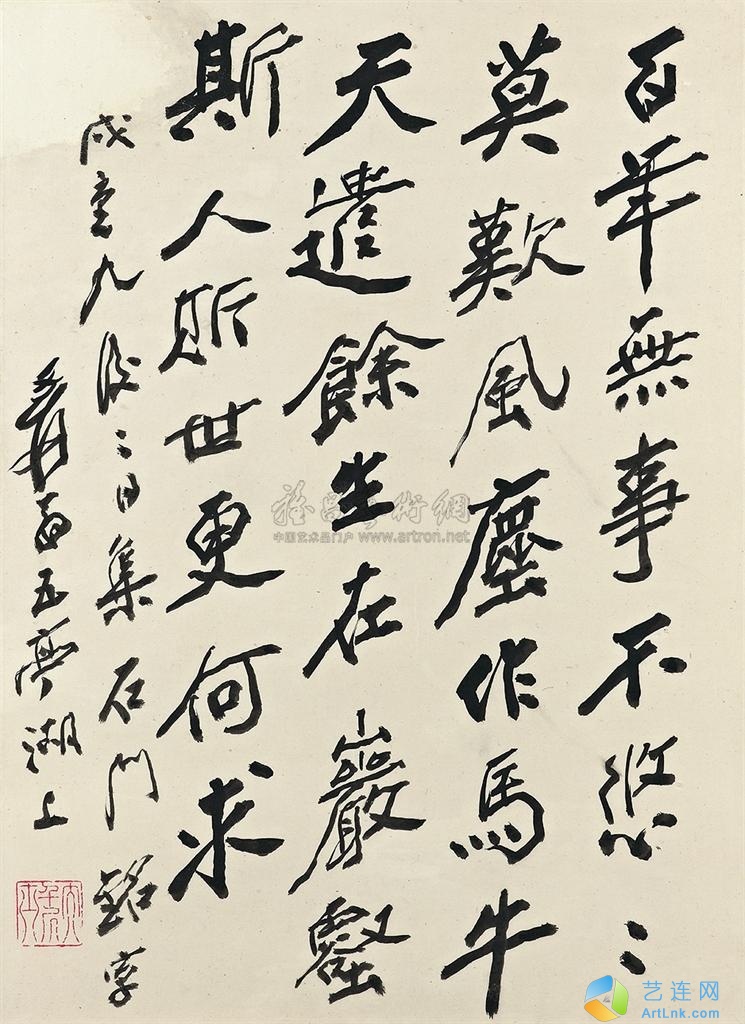 百年無事不悠〻
莫歎風塵作馬牛
天遣餘生在巖壑
斯人斯世更何求
重九後二日集石門銘字
爰五亭湖上
雅昌藝術網
中国艺术品门户 www.artron.net
艺连网
ArtLnk.com